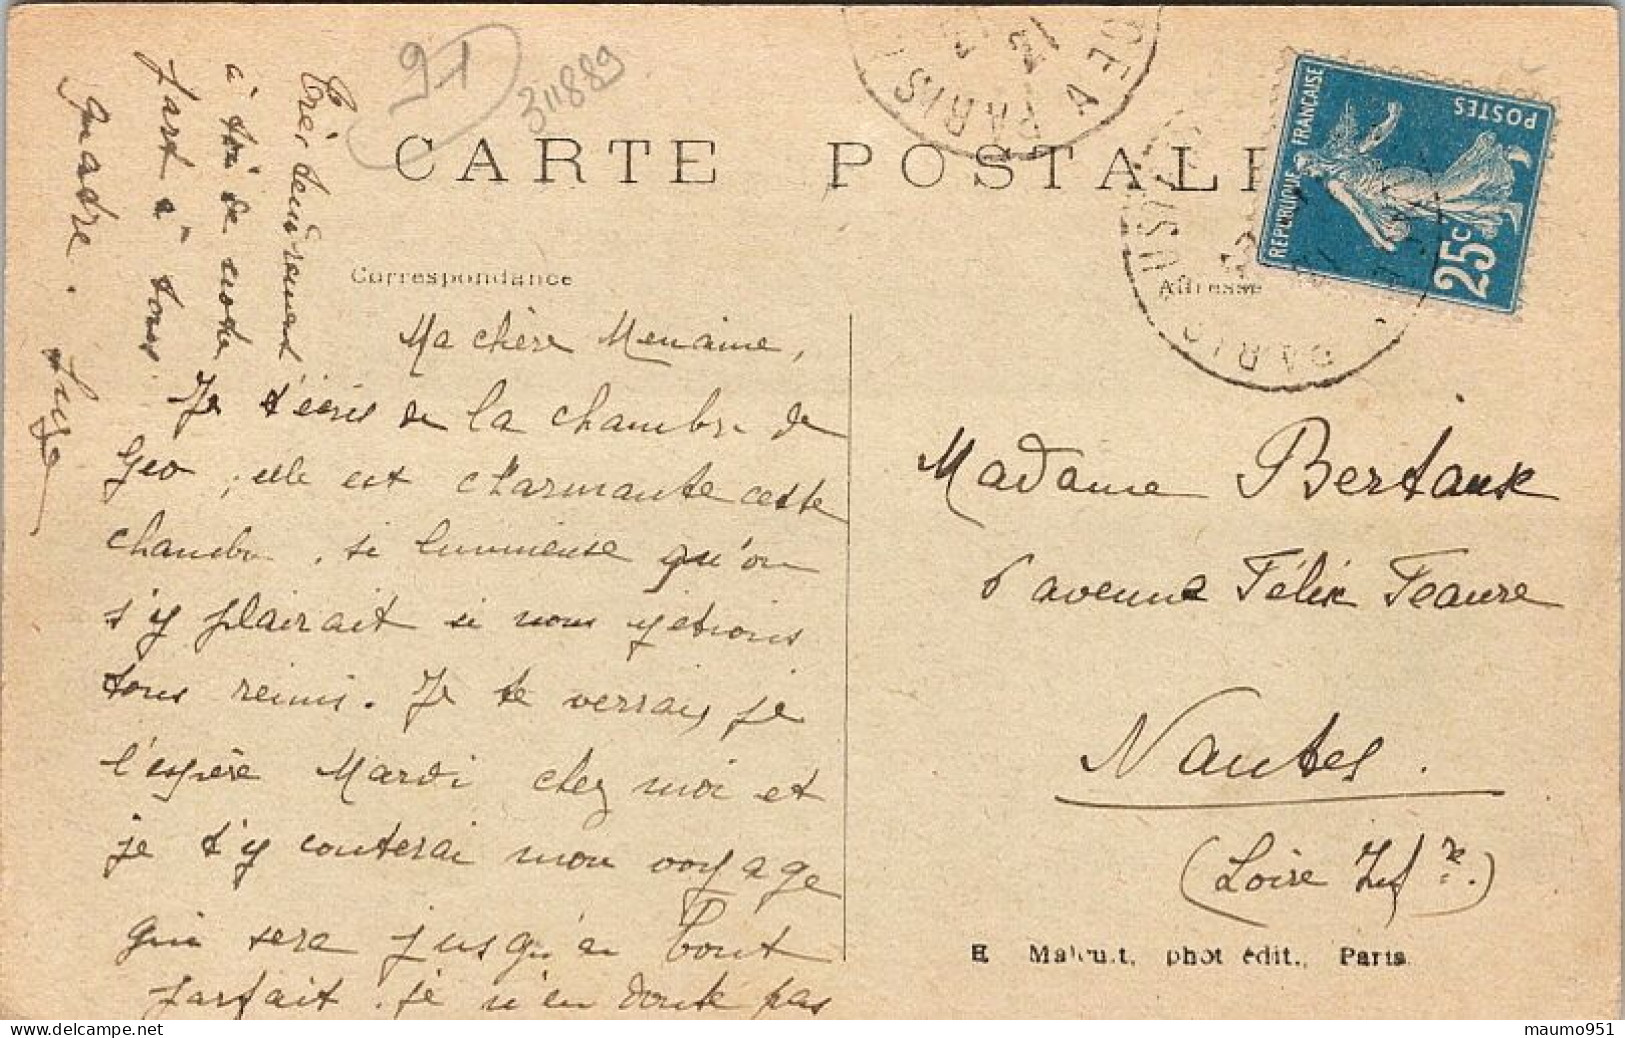 91
311889
CARTE POSTALE
Correspondance
Adresse
REPUBLIQUE FRANCAISE
POSTES
25c
PARIS
PARIS
Ma chère Menaine,
Je t'écris de la chambre de
Geo, elle est charmante cette
chambre, si lumineuse qu'on
s'y plairait si nous y étions
tous réunis. Je te verrai, je
l'espère Mardi chez moi et
je t'y conterai mon voyage
qui sera jusqu'au bout
parfait. je n'en doute pas
Très tendrement
à toi de notre
part à tous.
madre.
Madame Bertaux
6 avenue Félix Feaure
Nantes.
(Loire Infre.)
E Malcuit, phot édit., Paris
maumo951